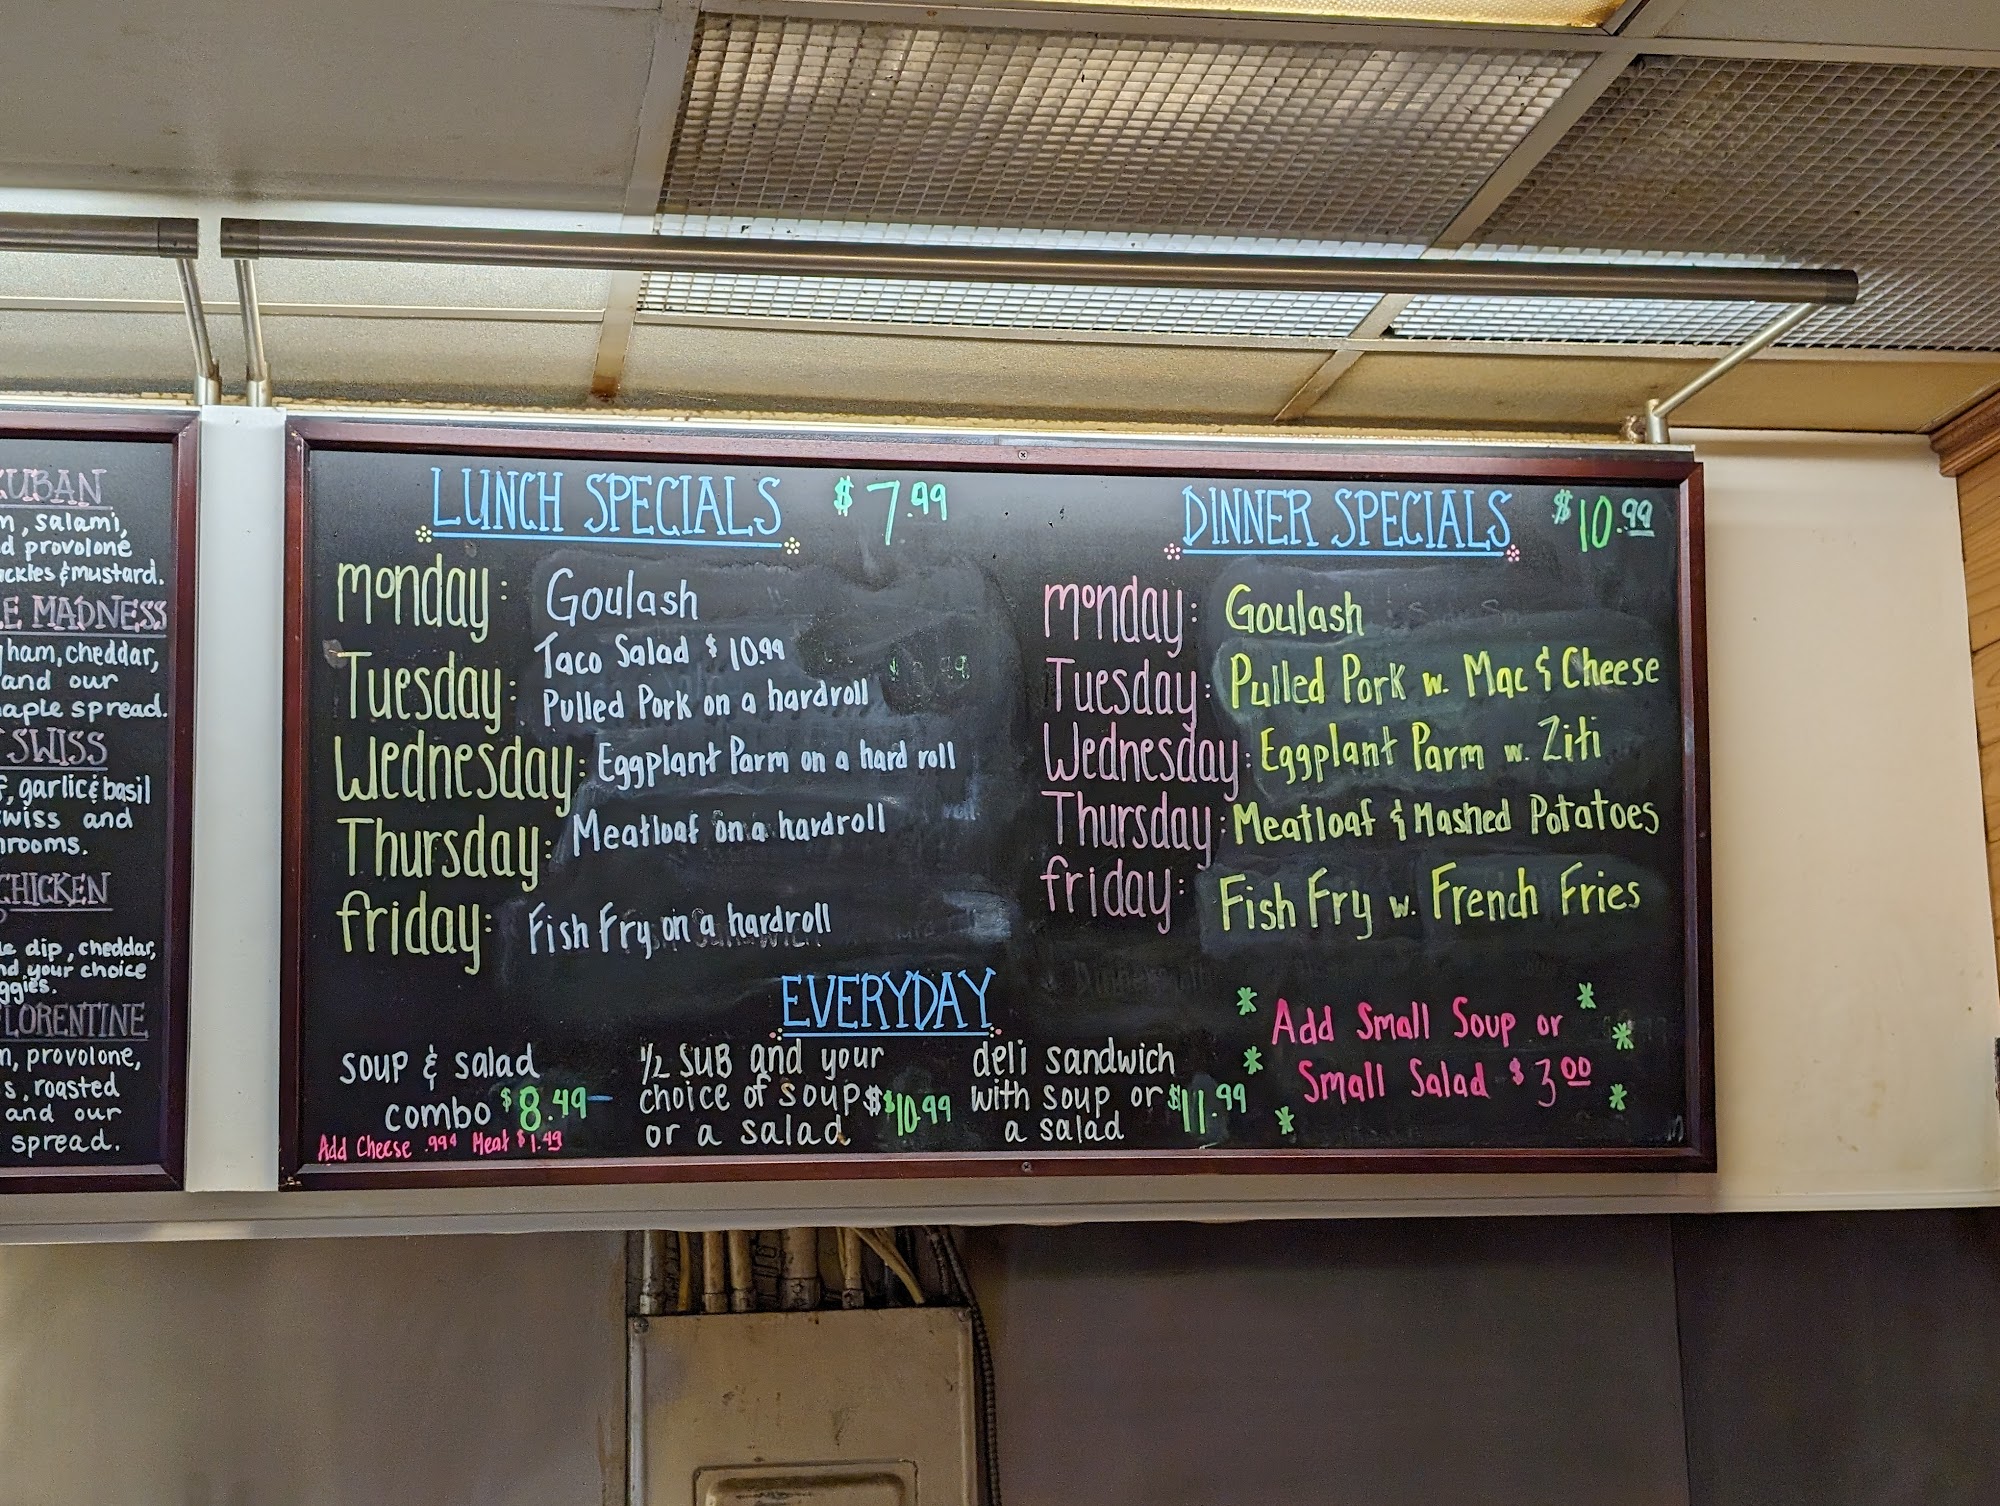 CUBAN
m, salami,
d provolone
ickles & mustard.
E MADNESS
ham, cheddar,
and our
aple spread.
SWISS
f, garlic & basil
wiss and
hrooms.
CHICKEN
le dip, cheddar,
nd your choice
ggies.
LORENTINE
n, provolone,
s, roasted
and our
spread.
LUNCH SPECIALS $7.99
monday: Goulash
Taco Salad $10.99
Tuesday: Pulled Pork on a hardroll
Wednesday: Eggplant Parm on a hard roll
Thursday: Meatloaf on a hardroll
friday: Fish Fry on a hardroll
DINNER SPECIALS $10.99
monday: Goulash
Tuesday: Pulled Pork w. Mac & Cheese
Wednesday: Eggplant Parm w. Ziti
Thursday: Meatloaf & Mashed Potatoes
friday: Fish Fry w. French Fries
EVERYDAY
soup & salad
combo $8.49
Add Cheese .99¢ Meat $1.49
1/2 SUB and your
choice of soup $$10.99
or a salad
deli sandwich
with soup or $11.99
a salad
Add Small Soup or
Small Salad $3.00